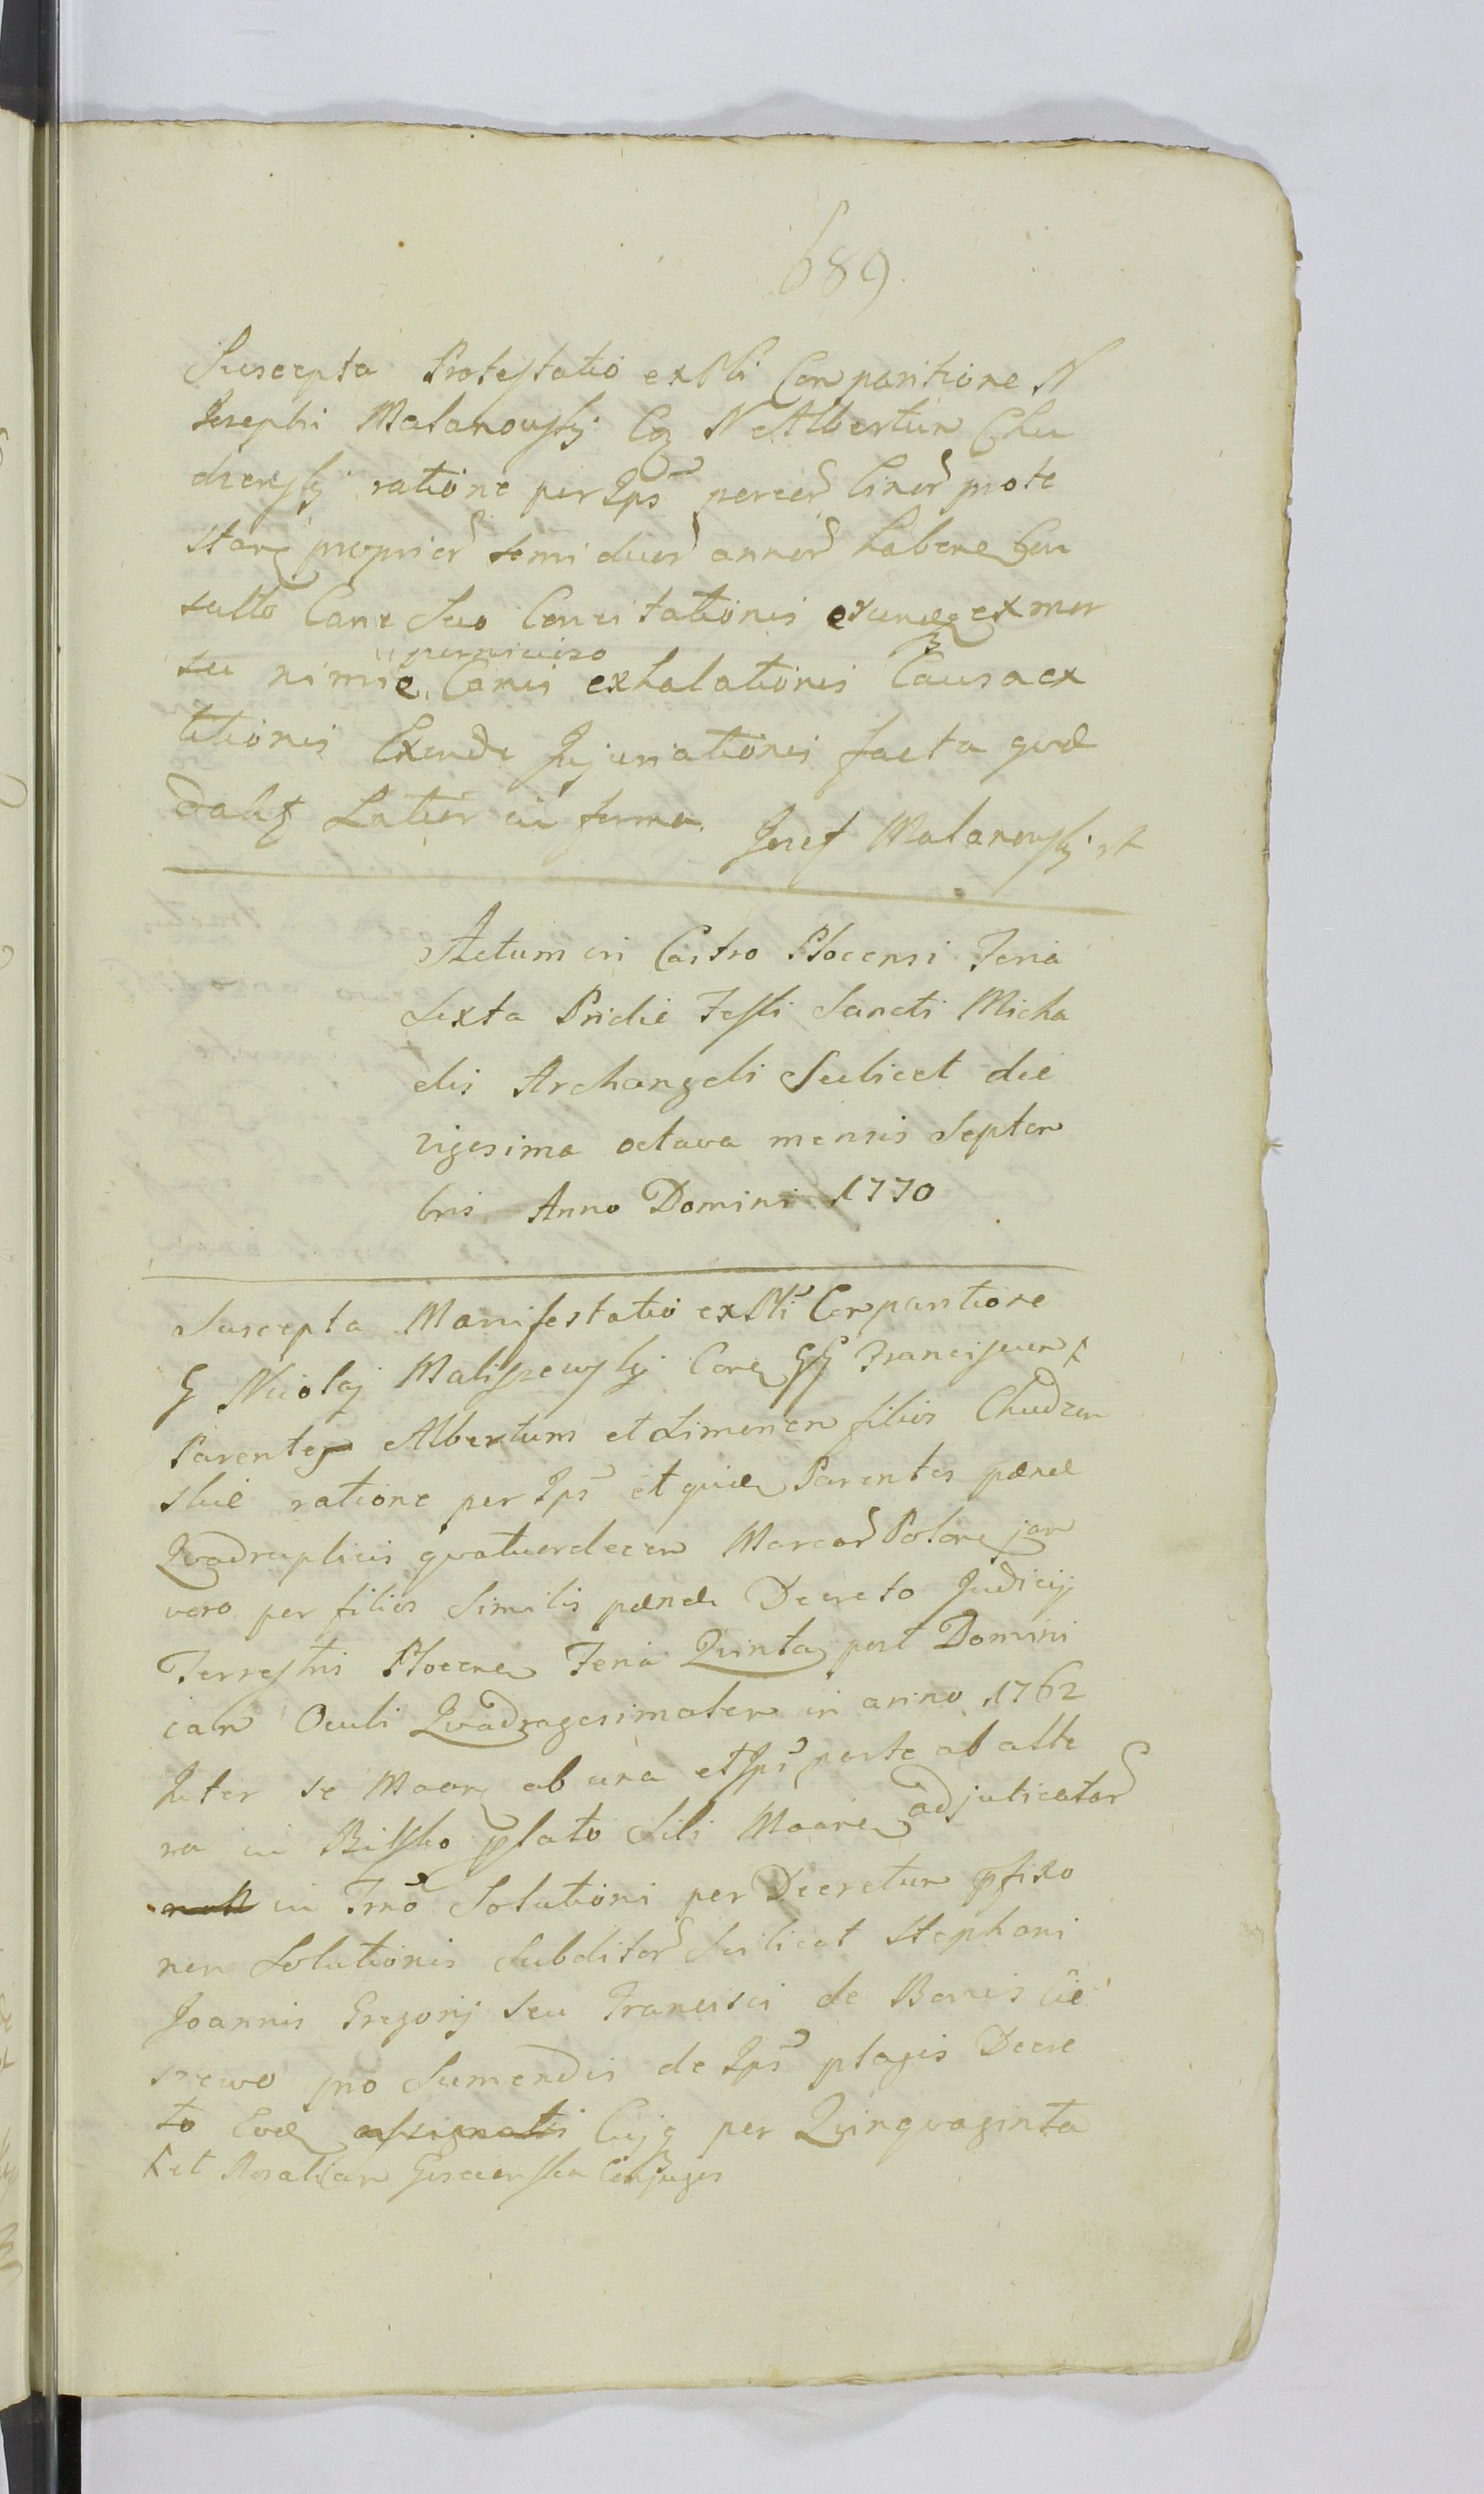 689.
Suscepta Protestatio ex Pti Comparitione N
Josephi Malanowskj Cq N Albertum Chu
dzenskj ratione per Ips percer liner prote
stans proprier semi duor annor habene Con
sulto Cane Suo Concitationis exunde ex mor
su nimie pernicioso Canis exhalationis Causa ex
titionis Exinde Injuriationis facta quæ
dabz Latior in forma. Josef Malanowskj
Actum in Castro Plocensi Feria
Sexta Pridie Festi Sancti Micha
elis Archangeli Scilicet die
vigesima octava mensis Septem
bris Anno Domini 1770
Suscepta Manifestatio ex Pti Comparitione
G Nicolaj Maliszewskj Cong GG Franciscum
Parentes Albertum et Simonem filios Chudzen
skie ratione per Ips et quidem Parentes pænæ
Qvadruplicis qvatuordecem Marcar Polon jam
vero per filios Similis pænæ Decreto Judicij
Terrestris Plocen Feria Qvinta post Domini
cam Oculi Qvadragesimalem in anno 1762
Inter se Maan ab una et Ips parte ab alte
ra in Bilsko plato Sibi Maan adjudicatar
in Tmo Solutioni per Decretum pfixo
non Solutionis Subditor Scilicet Stephani
Joannis Gregorij Seu Francisci de Bonis Cie
szewo pro Sumendis de Ips plagis Decre
to Eod assignatis Cujq per Qvinqvaginta
et Rosaliam Conjuges